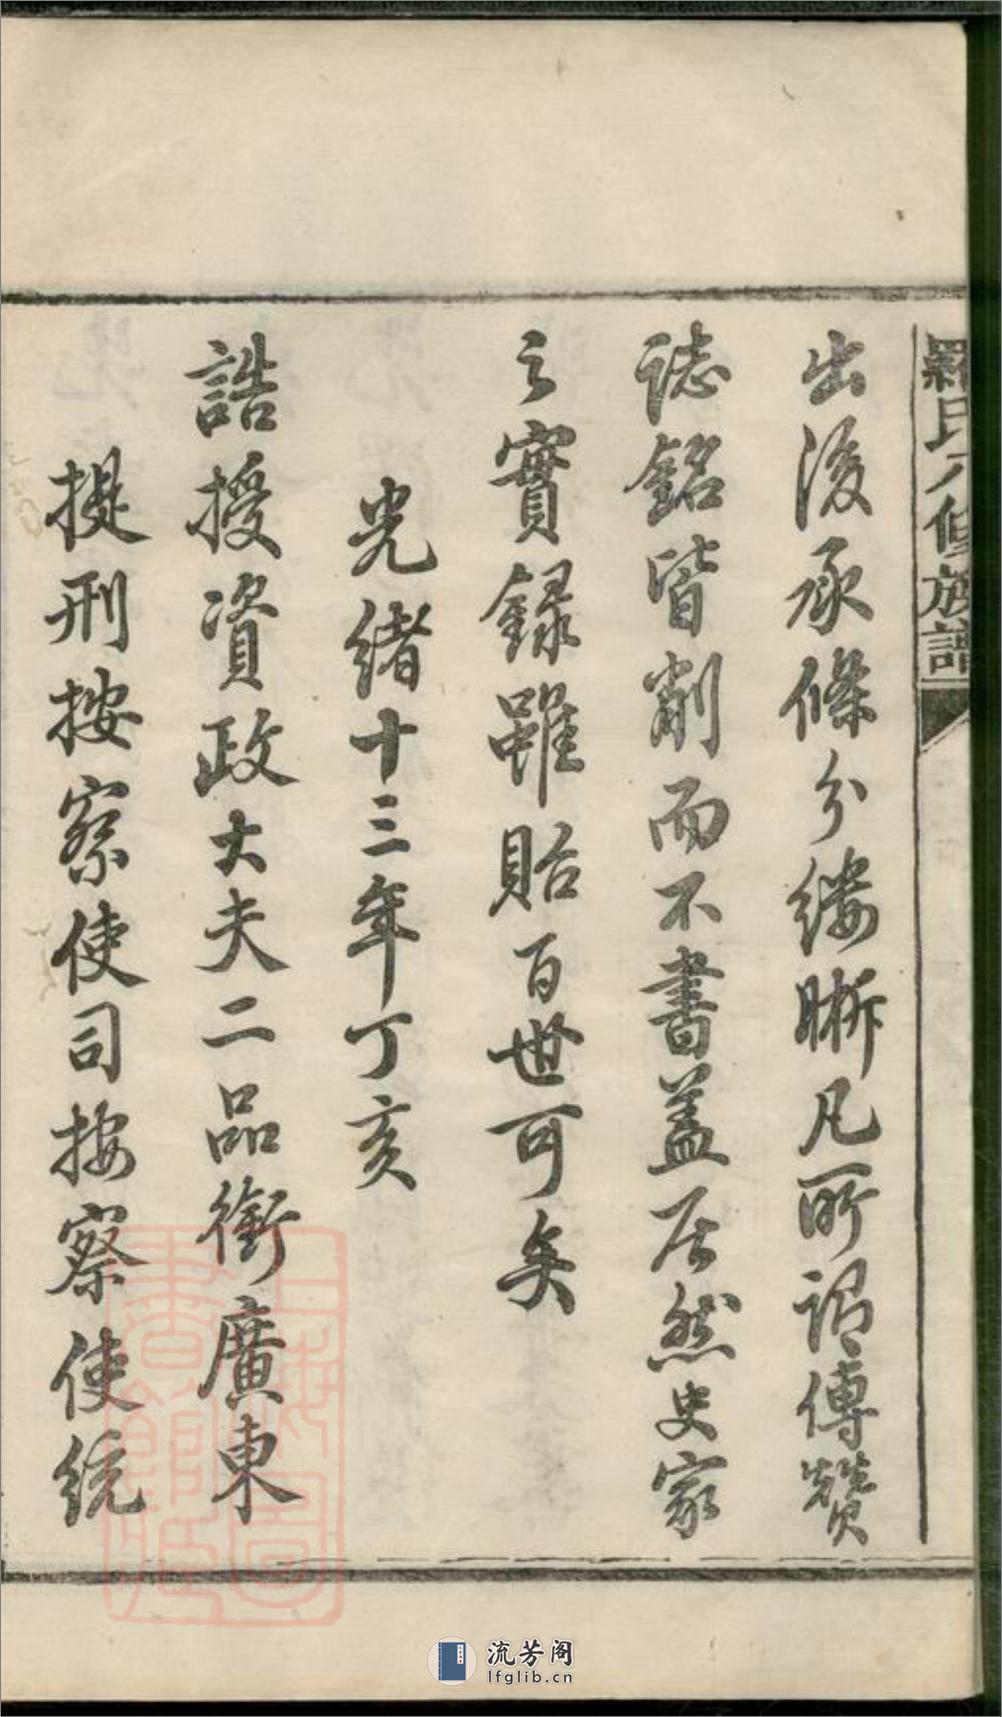 羅氏六修族譜
出後承條分縷晰凡所謂傳贊
誌銘皆削而不書蓋居然史家
之實錄雖貽百世可矣
光緒十三年丁亥
誥授資政大夫二品銜廣東
提刑按察使司按察使統
上海圖書館藏
流芳阁
lfglib.cn